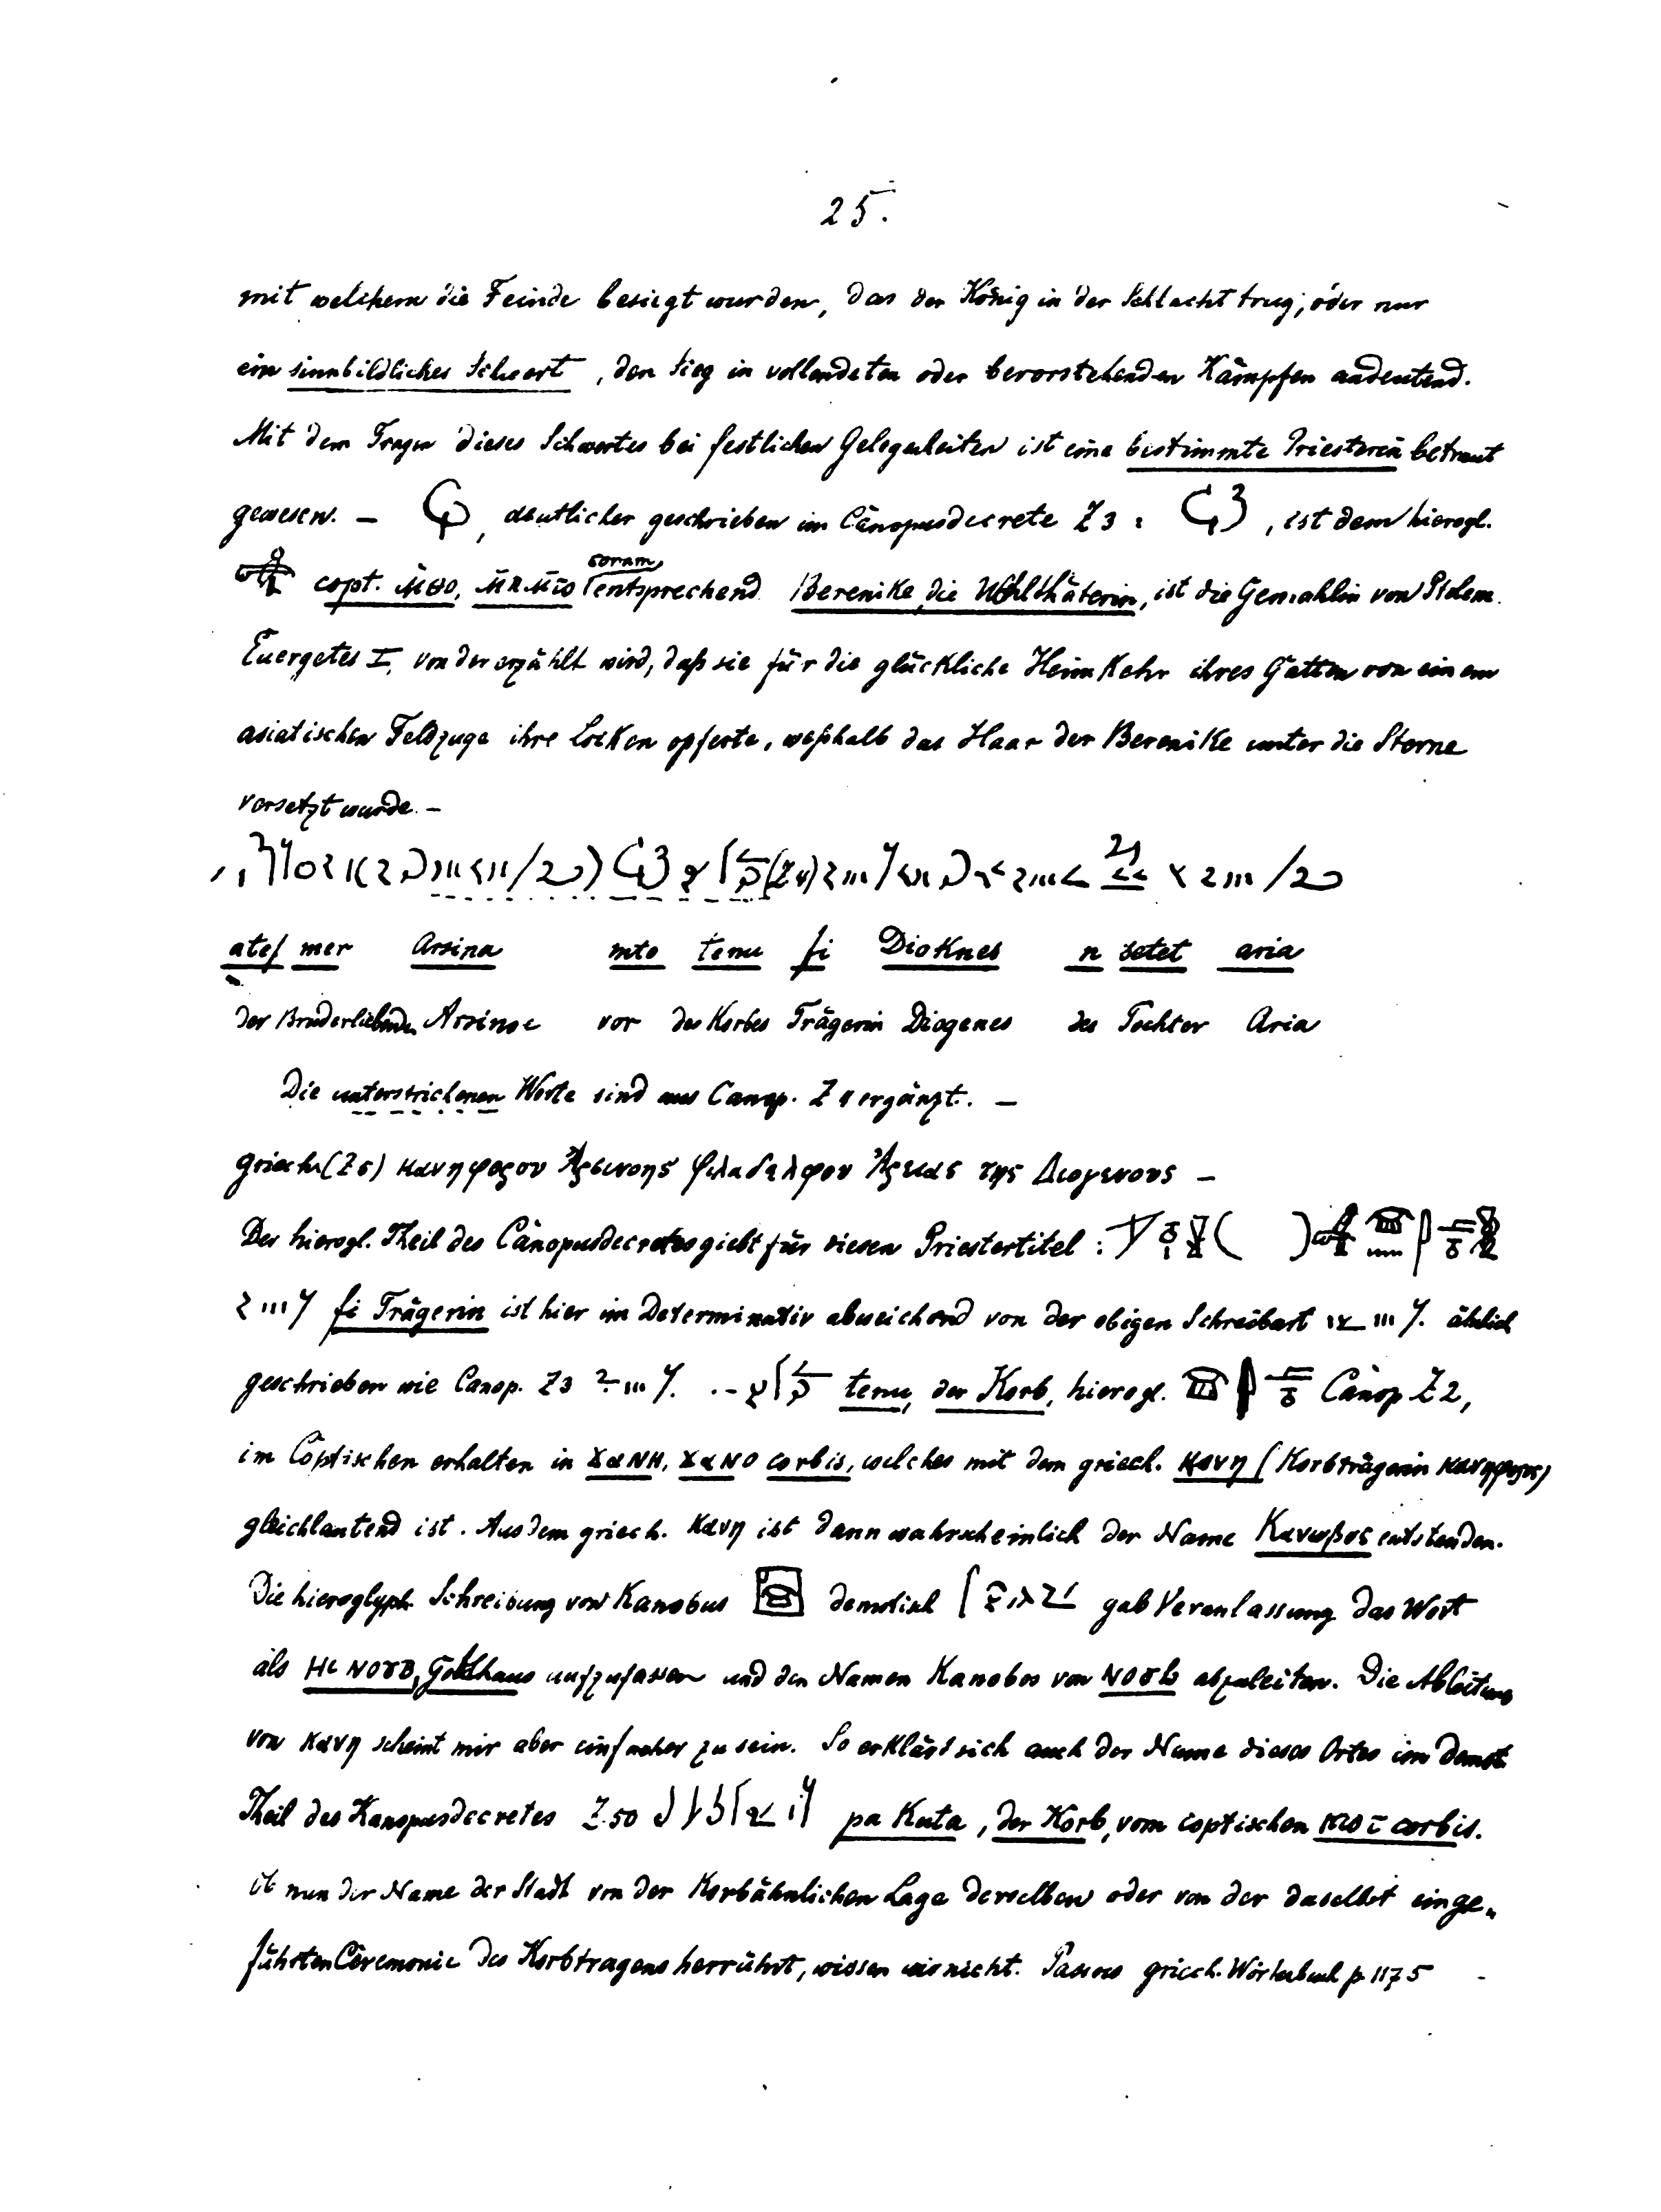 25.
mit welchem die Feinde besiegt wurden, das der König in der Schlacht trug, oder nur
ein sinnbildliches Schwert, den Sieg in vollendeten oder bevorstehenden Kämpfen andeutend.
Mit dem Tragen dieses Schwertes bei festlichen Gelegenheiten ist eine bestimmte Priesterin betraut
gewesen. — , deutlicher geschrieben im Canopusdecrete Z 3 : , ist dem hierogl.
copt. ⲙ̄ⲑⲟ, coram entsprechend. Berenike, die Wohlthäterin, ist die Gemahlin von Ptolem.
Euergetes I, von der erzählt wird, daß sie für die glückliche Heimkehr ihres Gatten von einem
asiatischen Feldzuge ihre Locken opferte, weßhalb das Haar der Berenike unter die Sterne
versetzt wurde. —
atef mer Arsina mto tenu fi Dioknes n setet aria
der Bruderliebenden Arsinoe vor des Korbes Trägerin Diogenes des Tochter Aria
Die unterstrichenen Worte sind aus Canop. Z 4 ergänzt. —
griech. (Z 5) κανηφορου Ἀρσινοης φιλαδελφου Ἀρειας της Διογενους —
Der hierogl. Theil des Canopusdecretes giebt für diesen Priestertitel : ( )
fi Trägerin ist hier im Determinativ abweichend von der obigen Schreibart . ähnlich
geschrieben wie Canop. Z 3 . — tenu, der Korb, hierogl. Canop Z 2,
im Coptischen erhalten in ϫⲁⲛⲏ, ϫⲁⲛⲟ corbis, welches mit dem griech. κανη (Korbträgerin κανηφορος)
gleichlautend ist. Aus dem griech. κανη ist dann wahrscheinlich der Name Κανωβος entstanden.
Die hieroglyph. Schreibung von Kanobus demotisch gab Veranlassung das Wort
als ⲏⲓ ⲛⲟⲩⲃ, Goldhaus aufzufassen und den Namen Kanobos von ⲛⲟⲩⲃ abzuleiten. Die Ableitung
von κανη scheint mir aber einfacher zu sein. So erklärt sich auch der Name dieses Ortes im demot.
Theil des Kanopusdecretes Z. 50 pa Kuta, der Korb, vom coptischen ⲕⲟⲧ corbis.
Ob nun der Name der Stadt von der Korbähnlichen Lage derselben oder von der daselbst einge-
führten Ceremonie des Korbtragens herrührt, wissen wir nicht. Passows griech. Wörterbuch p. 1175